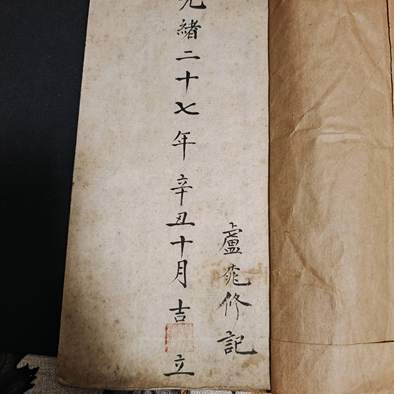 光緒二十七年辛丑十月吉立
盧 修記